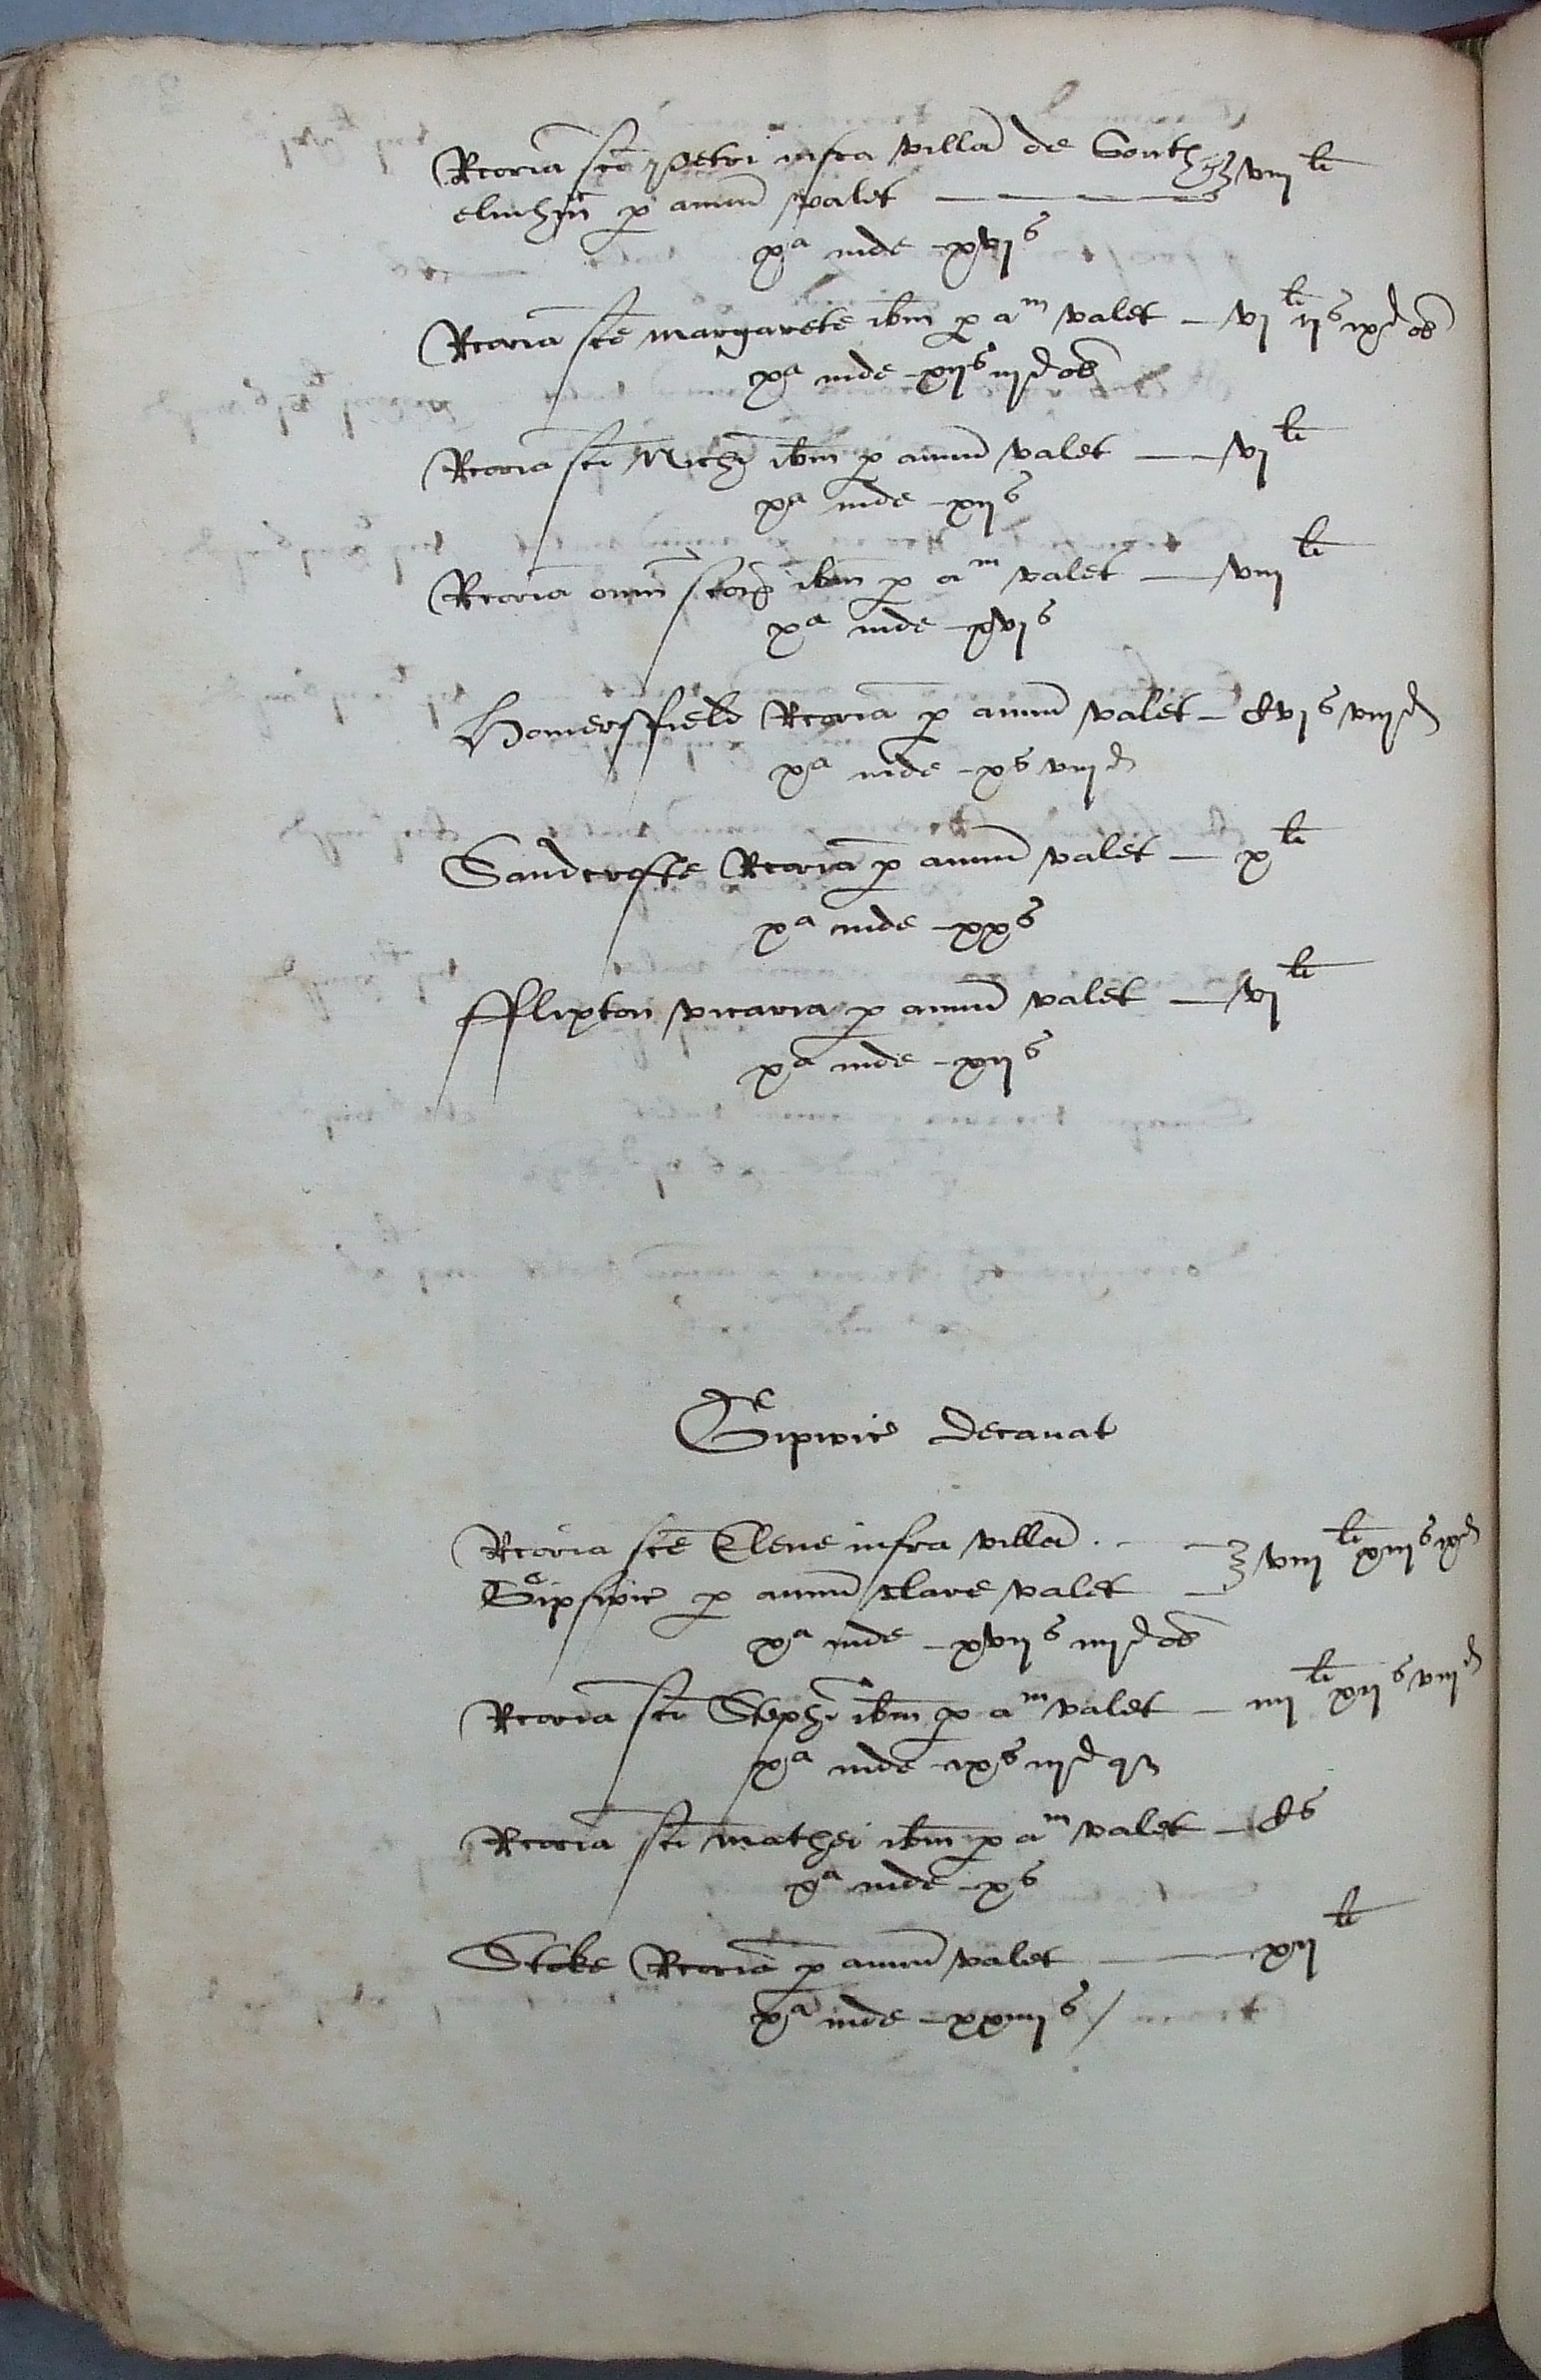 Rcoria scī Petri infra villā de South
elmhm̄ p annū valet — viij li
xa inde – xvj s
Rcoria scē margarete ibm p am valet – vj li ij s ix d ob
xa inde – xij s iij d ob
Rcoria sci Mich ibm p annū valet — vj li
xa inde – xij s
Rcoria oīm scōrꝫ ibm p am valet — viij li
xa inde – xvj s
Homersffield Rcoria p annū valet – Cvj s viij d
xa inde – x s viij d
Sandcrofte Rcoria p annū valet — x li
xa inde – xx s
fflixton vicaria p annū valet — vj li
xa inde – xij s
Gipwic decanat
Rcoria scē Elene infra villā
Gipswic p annū clare valet – viij li xiij s ix d
xa inde – xvij s iiij d ob
Rcoria sci Stephi ibm p am valet – iiij li xij s viij d
xa inde – ix s iij d qꝫ
Rcoria sci mathei ibm p am valet – C s
xa inde – x s
Stoke Rcoria p annū valet — xij li
xa inde – xxiiij s /